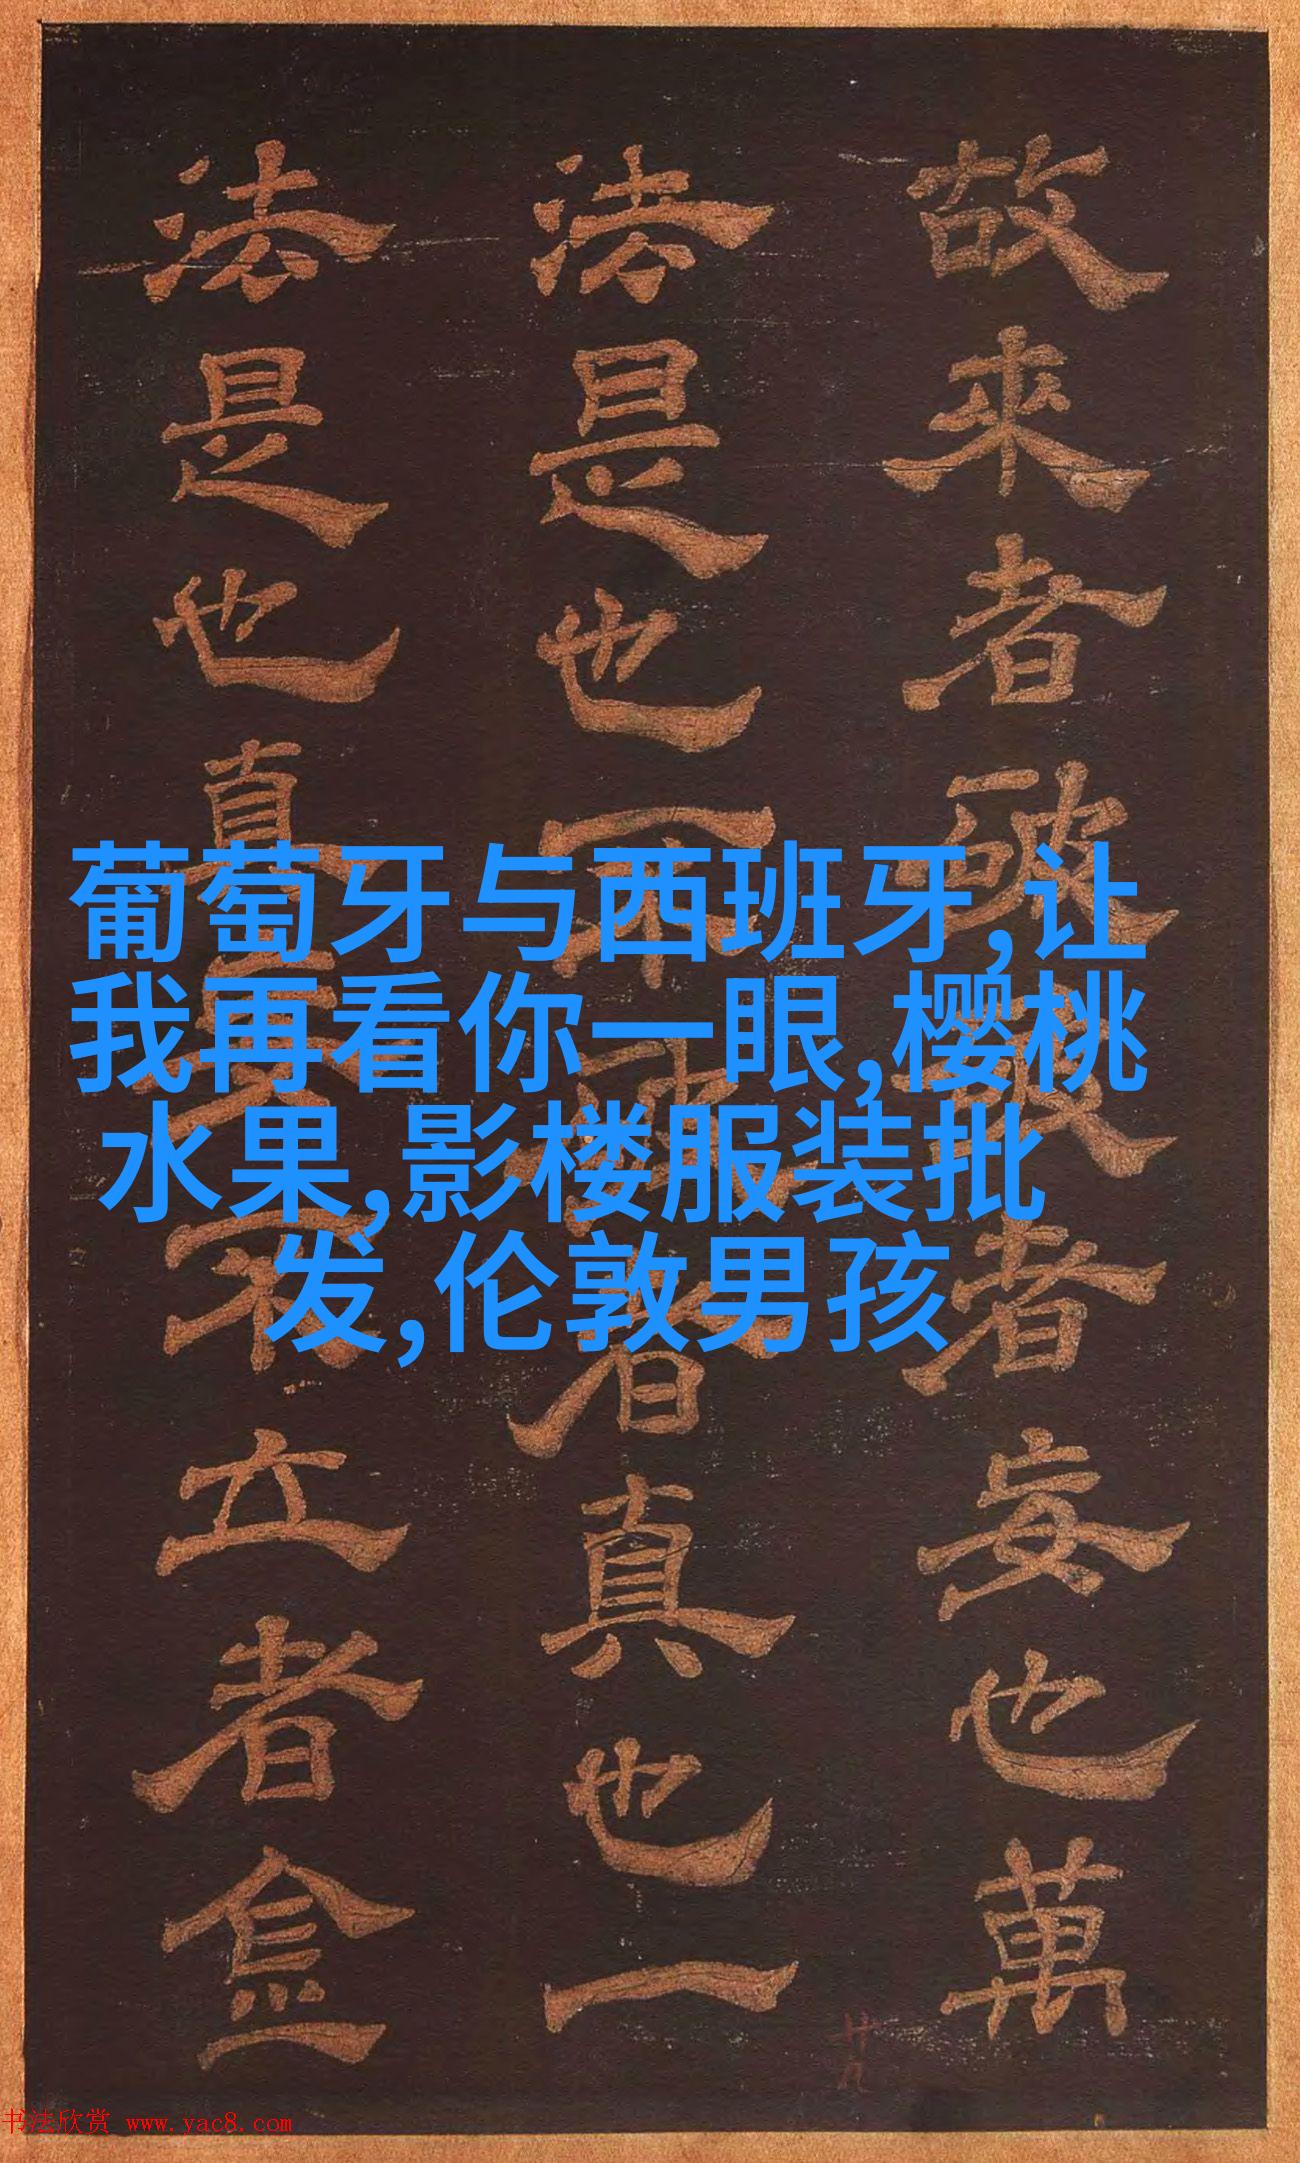 故來者破者妄也萬
法是也不者真也一
法是也真不立者
葡萄牙与西班牙,让
我再看你一眼,樱桃
水果,影楼服装批
发,伦敦男孩
廿九
书法欣赏 www.yac8.com